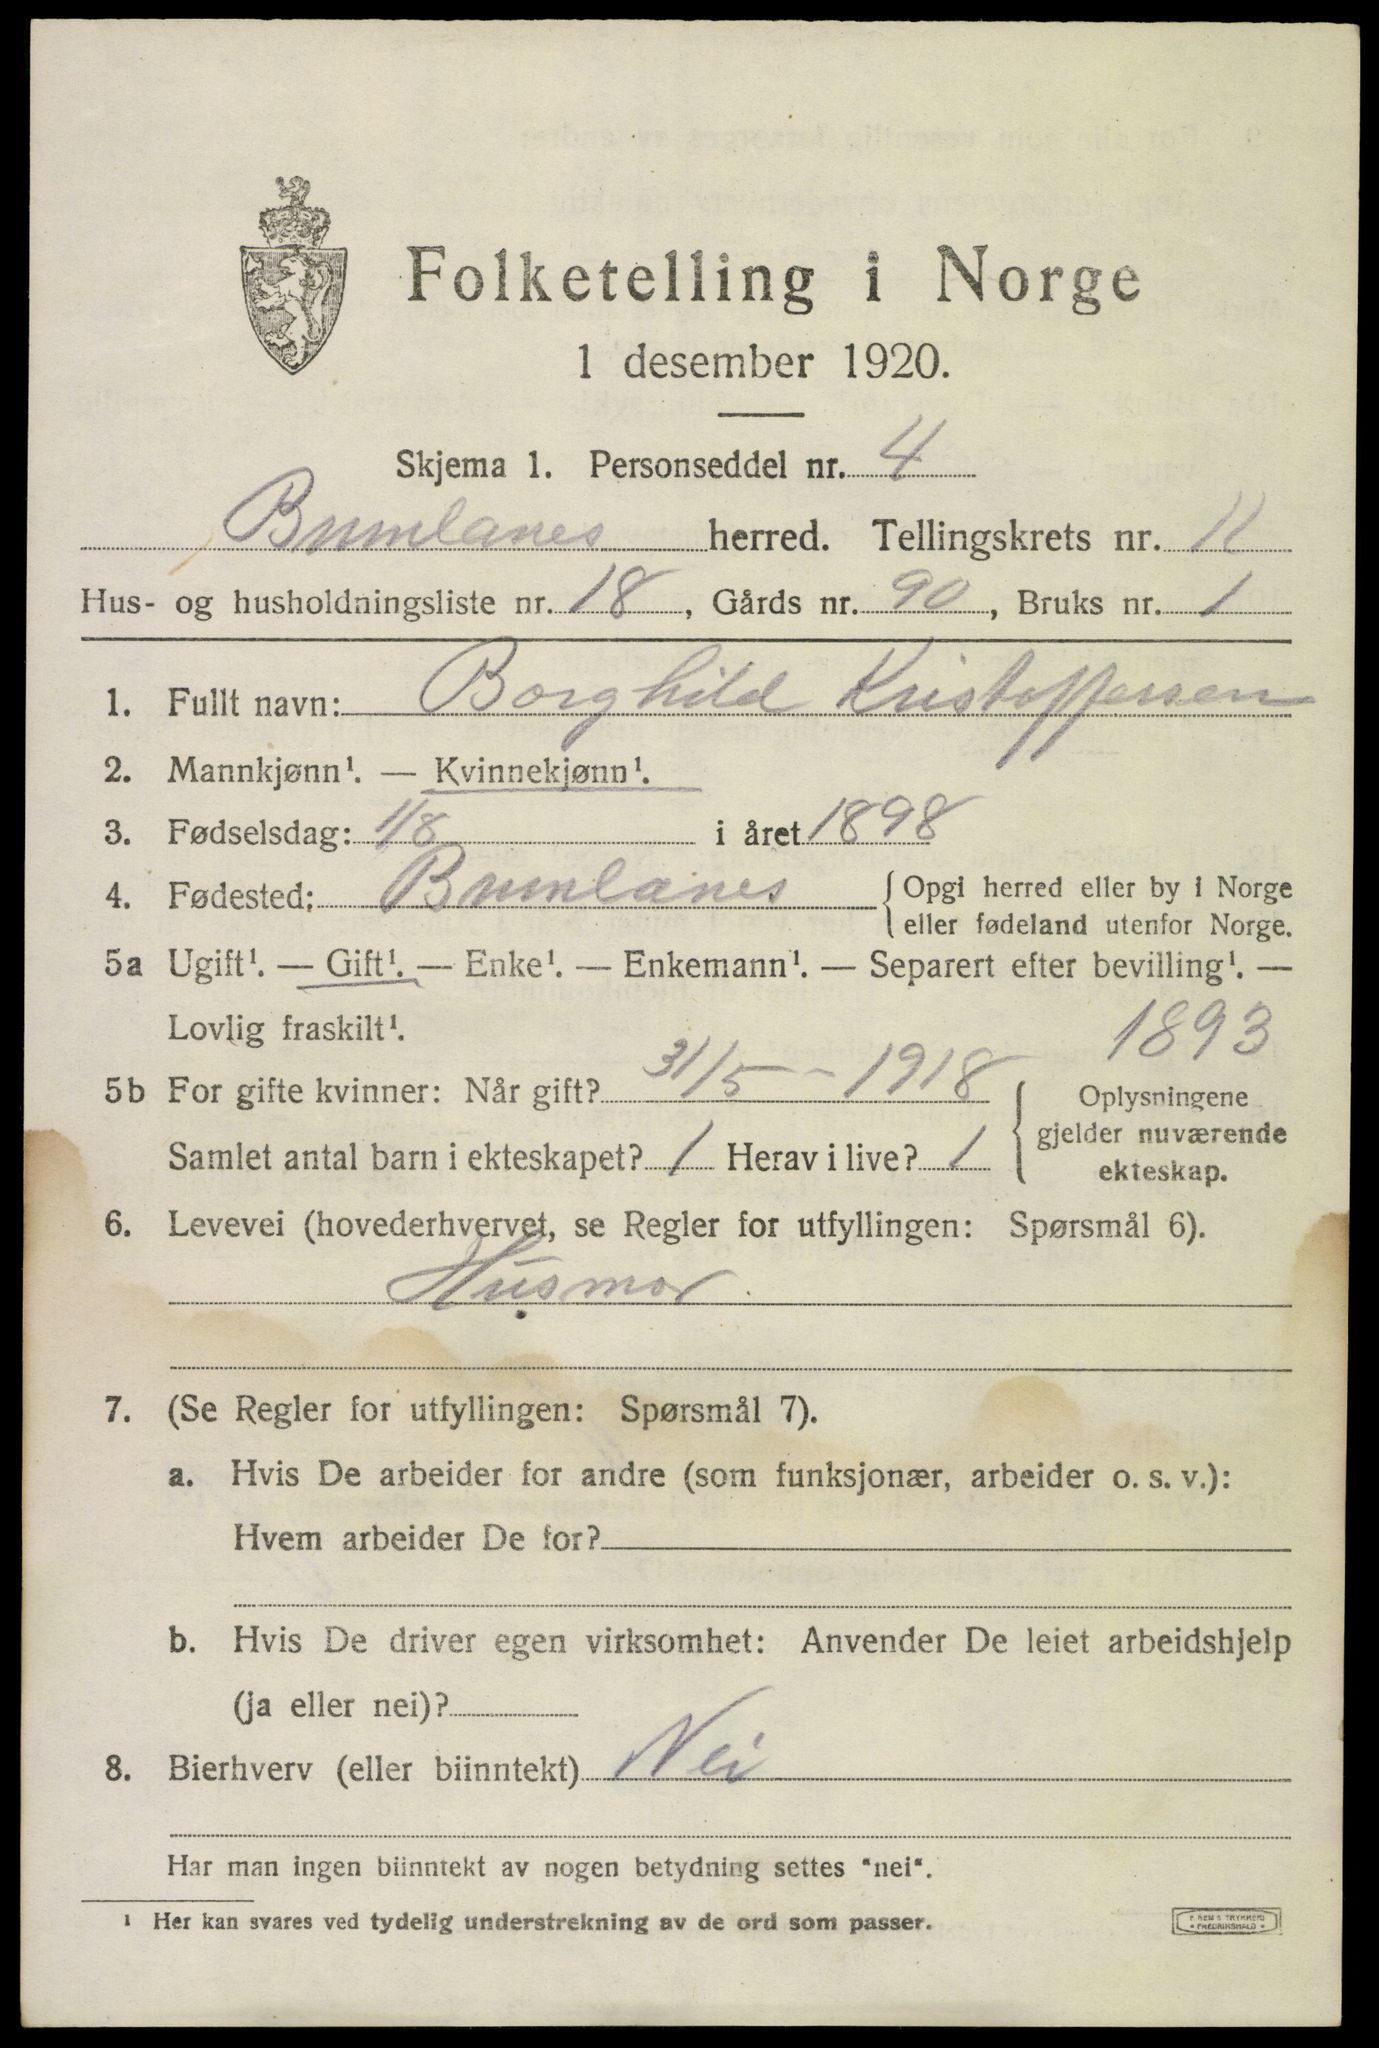 Folketelling i Norge
1 desember 1920.
Skjema 1. Personseddel nr. 4
Brunlanes herred. Tellingskrets nr. 11
Hus- og husholdningsliste nr. 18, Gårds nr. 90, Bruks nr. 1
1. Fullt navn: Borghild Kristoffersen
2. Mannkjønn¹. — Kvinnekjønn¹.
3. Fødselsdag: 1/8 i året 1898
4. Fødested: Brunlanes { Opgi herred eller by i Norge
eller fødeland utenfor Norge.
5a Ugift¹. — Gift¹. — Enke¹. — Enkemann¹. — Separert efter bevilling¹. —
Lovlig fraskilt¹.
1893
5b For gifte kvinner: Når gift? 31/5 - 1918
Samlet antal barn i ekteskapet? 1 Herav i live? 1
Oplysningene
gjelder nuværende
ekteskap.
6. Levevei (hovederhvervet, se Regler for utfyllingen: Spørsmål 6).
Husmor.
7. (Se Regler for utfyllingen: Spørsmål 7).
a. Hvis De arbeider for andre (som funksjonær, arbeider o. s. v.):
Hvem arbeider De for?
b. Hvis De driver egen virksomhet: Anvender De leiet arbeidshjelp
(ja eller nei)?
8. Bierhverv (eller biinntekt) Nei
Har man ingen biinntekt av nogen betydning settes "nei".
¹ Her kan svares ved tydelig understrekning av de ord som passer.
TRYKKERI
FREDRIKSHALD